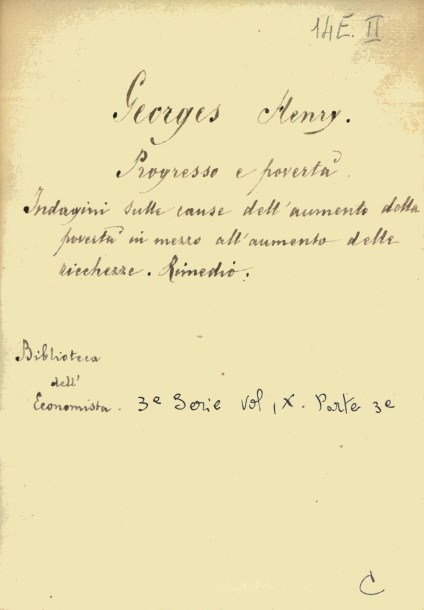 14E. II
Georges Henry.
Progresso e povertà.
Indagini sulle cause dell'aumento della
povertà in mezzo all'aumento delle
ricchezze. Rimedio.
Biblioteca
dell'
Economista. 3e Serie Vol. IX. Parte 3e
C